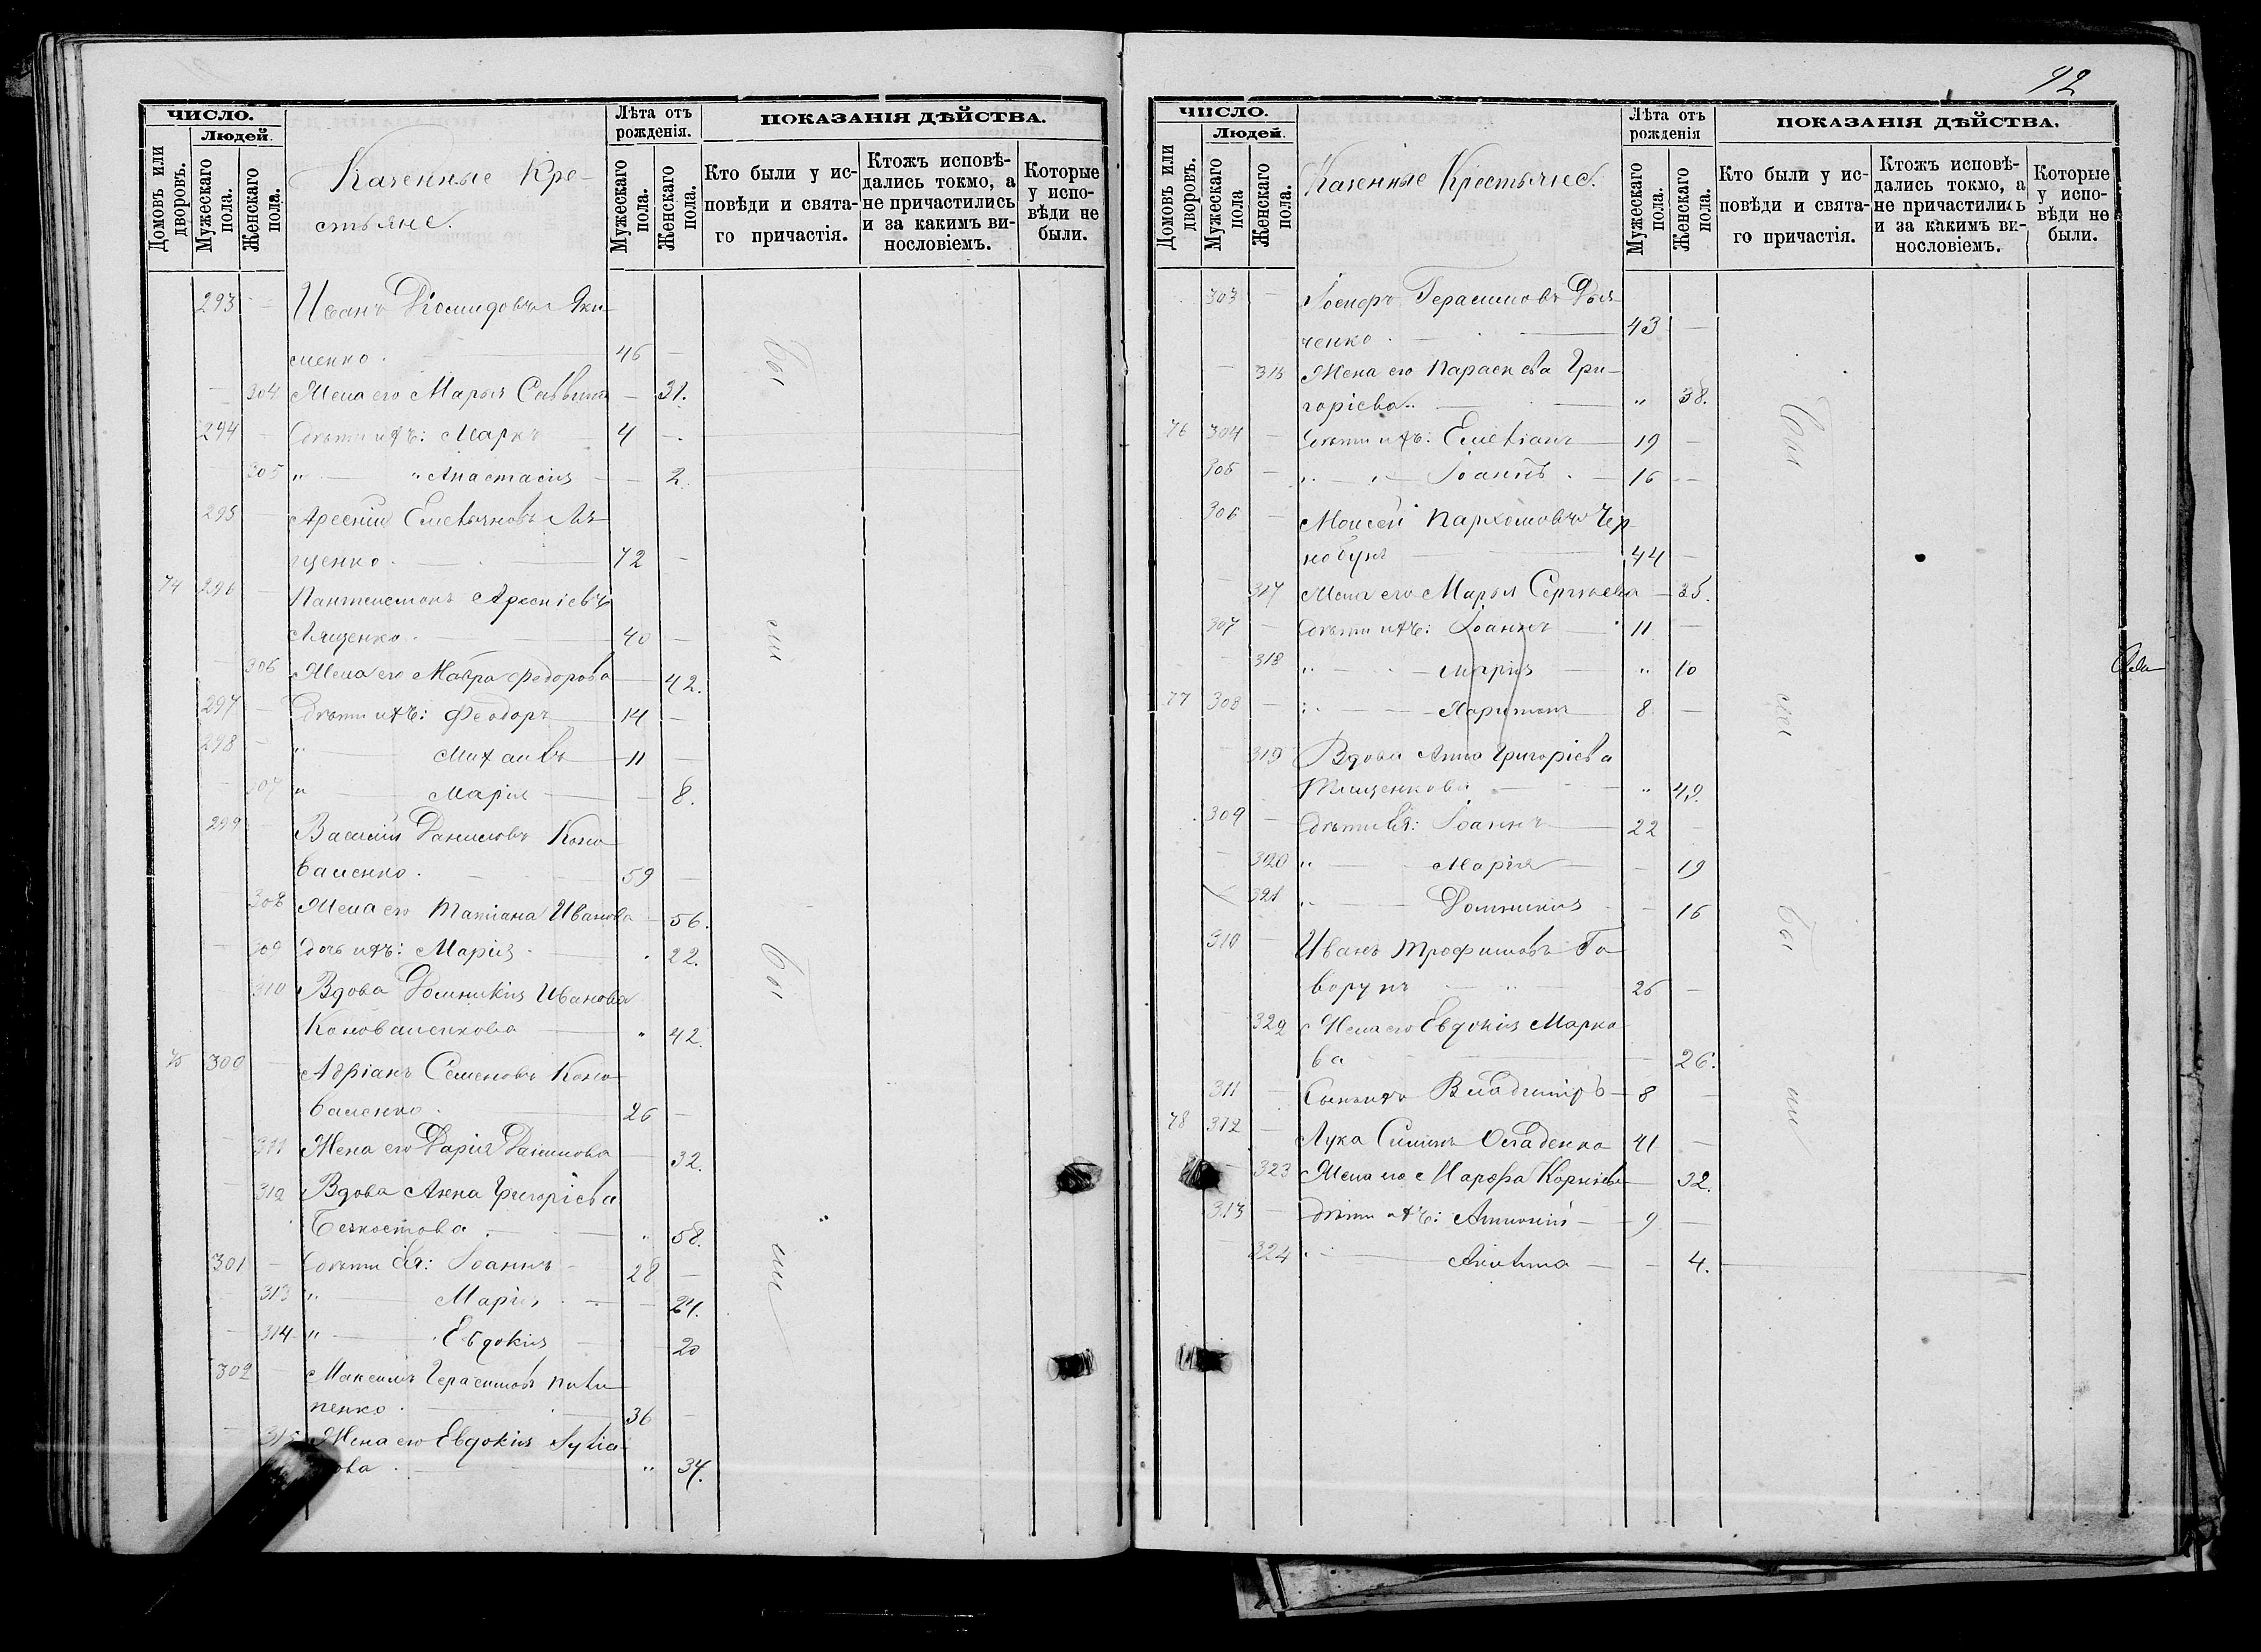 92
ЧИСЛО.
Людей.
Домовъ или дворовъ.
Мужескаго пола.
Женскаго пола.
Казенные Кре-
стьяне.
Лѣта отъ
рожденія.
Мужескаго пола.
Женскаго пола.
ПОКАЗАНІЯ ДѢЙСТВА.
Кто были у ис-
повѣди и свята-
го причастія.
Ктожъ исповѣ-
дались токмо, а
не причастились
и за какимъ ви-
нословіемъ.
Которые
у испо-
вѣди не
были.
293 — Иванъ Діомидовъ Яки-
менко. 46 —
— 304 Жена его Марья Саввина — 31.
294 — Дѣти ихъ: Маркъ 4 —
305 " " Анастасія — 2.
295 — Арсеній Емельяновъ Ля-
щенко. 72 —
74 296 — Пантелеимонъ Арсеніевъ
Лященко. 40 —
— 306 Жена его Мавра Федорова 42.
297 — Дѣти ихъ: Феодоръ 14 —
298 — " Михаилъ 11 —
— 307 " Марія — 8.
299 — Василій Даниловъ Коно-
валенко. 59 —
— 308 Жена его Татіана Иванова 56.
— 309 Дочь ихъ: Марія 22.
— 310 Вдова Домникія Иванова
Коноваленкова " 42.
75 300 — Адріанъ Семеновъ Коно-
валенко. 26 —
— 311 Жена его Дарія Данилова 32.
— 312 Вдова Анна Григоріева
Безкостова " 58.
301 — Дѣти ея: Іоаннъ 28 —
— 313 " Марія — 24.
— 314 " Евдокія 20
302 — Максимъ Герасимовъ
пенко. 36 —
— 315 Жена его Евдокія
ова " 34.
бы
ли
бы
ли
ЧИСЛО.
Людей.
Домовъ или дворовъ.
Мужескаго пола
Женскаго пола.
Казенные Крестьяне.
Лѣта отъ
рожденія
Мужескаго пола.
Женскаго пола.
ПОКАЗАНІЯ ДѢЙСТВА.
Кто были у ис-
повѣди и свята-
го причастія.
Ктожъ исповѣ-
дались токмо, а
не причастились
и за какимъ ви-
нословіемъ.
Которые
у испо-
вѣди не
были.
303 — Іосифъ Герасимовъ
ченко 43 —
— 316 Жена его Параскева Гри-
горіева. " 38.
76 304 — Дѣти ихъ: Емеліанъ 19 —
305 — " " Іоаннъ 16 —
306 — Моисей Пархомовъ Чер
нобукъ 44 —
317 Жена его Марья Сергѣева — 35.
307 — Дѣти ихъ: Іоаннъ 11 —
— 318 " Марія " 10
77 308 — " Харитонъ 8 —
— 319 Вдова Анна Григоріева
Тищенкова " 42.
309 — Дѣти ея: Іоаннъ 22 —
— 320 " Марія — 19
321 " Домникія — 16
310 — Иванъ Трофимовъ Го-
ворунъ 26 —
— 322 Жена его Евдокія Марко
ва 26.
311 — Сынъ ихъ Владиміръ 8 —
78 312 — Лука 41 —
— 323 Жена его Марфа Корніева 32.
313 — Дѣти ихъ: 9 —
— 324 " Акилина — 4.
бы
ли
бы
ли